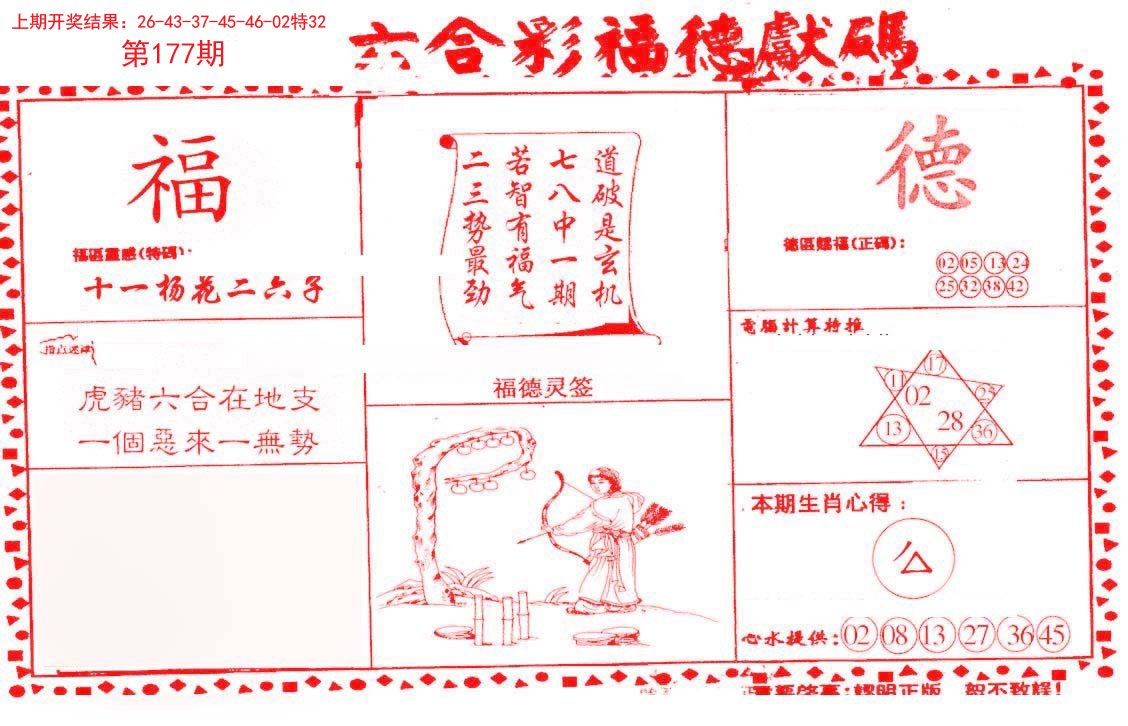 上期开奖结果：26-43-37-45-46-02特32
第177期
六合彩福德獻碼
福
福區靈感(特碼)
十一杨花二六子
虎豬六合在地支
一個惡來一無勢
道破是玄机
七八中一期
若智有福气
二三势最劲
福德灵签
德
德區賜福(正碼)：
02 05 13 24
25 32 38 42
電腦計算特推
17
11 02 25
13 28 36
15
本期生肖心得：
心水提供：02 08 13 27 36 45